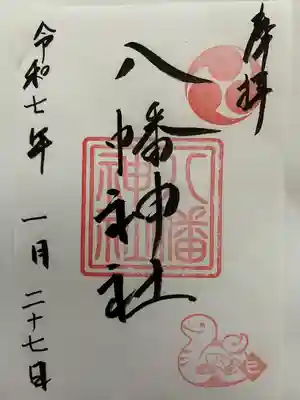 奉拝
八幡神社
八幡
神社
令和七年 一月 二十七日